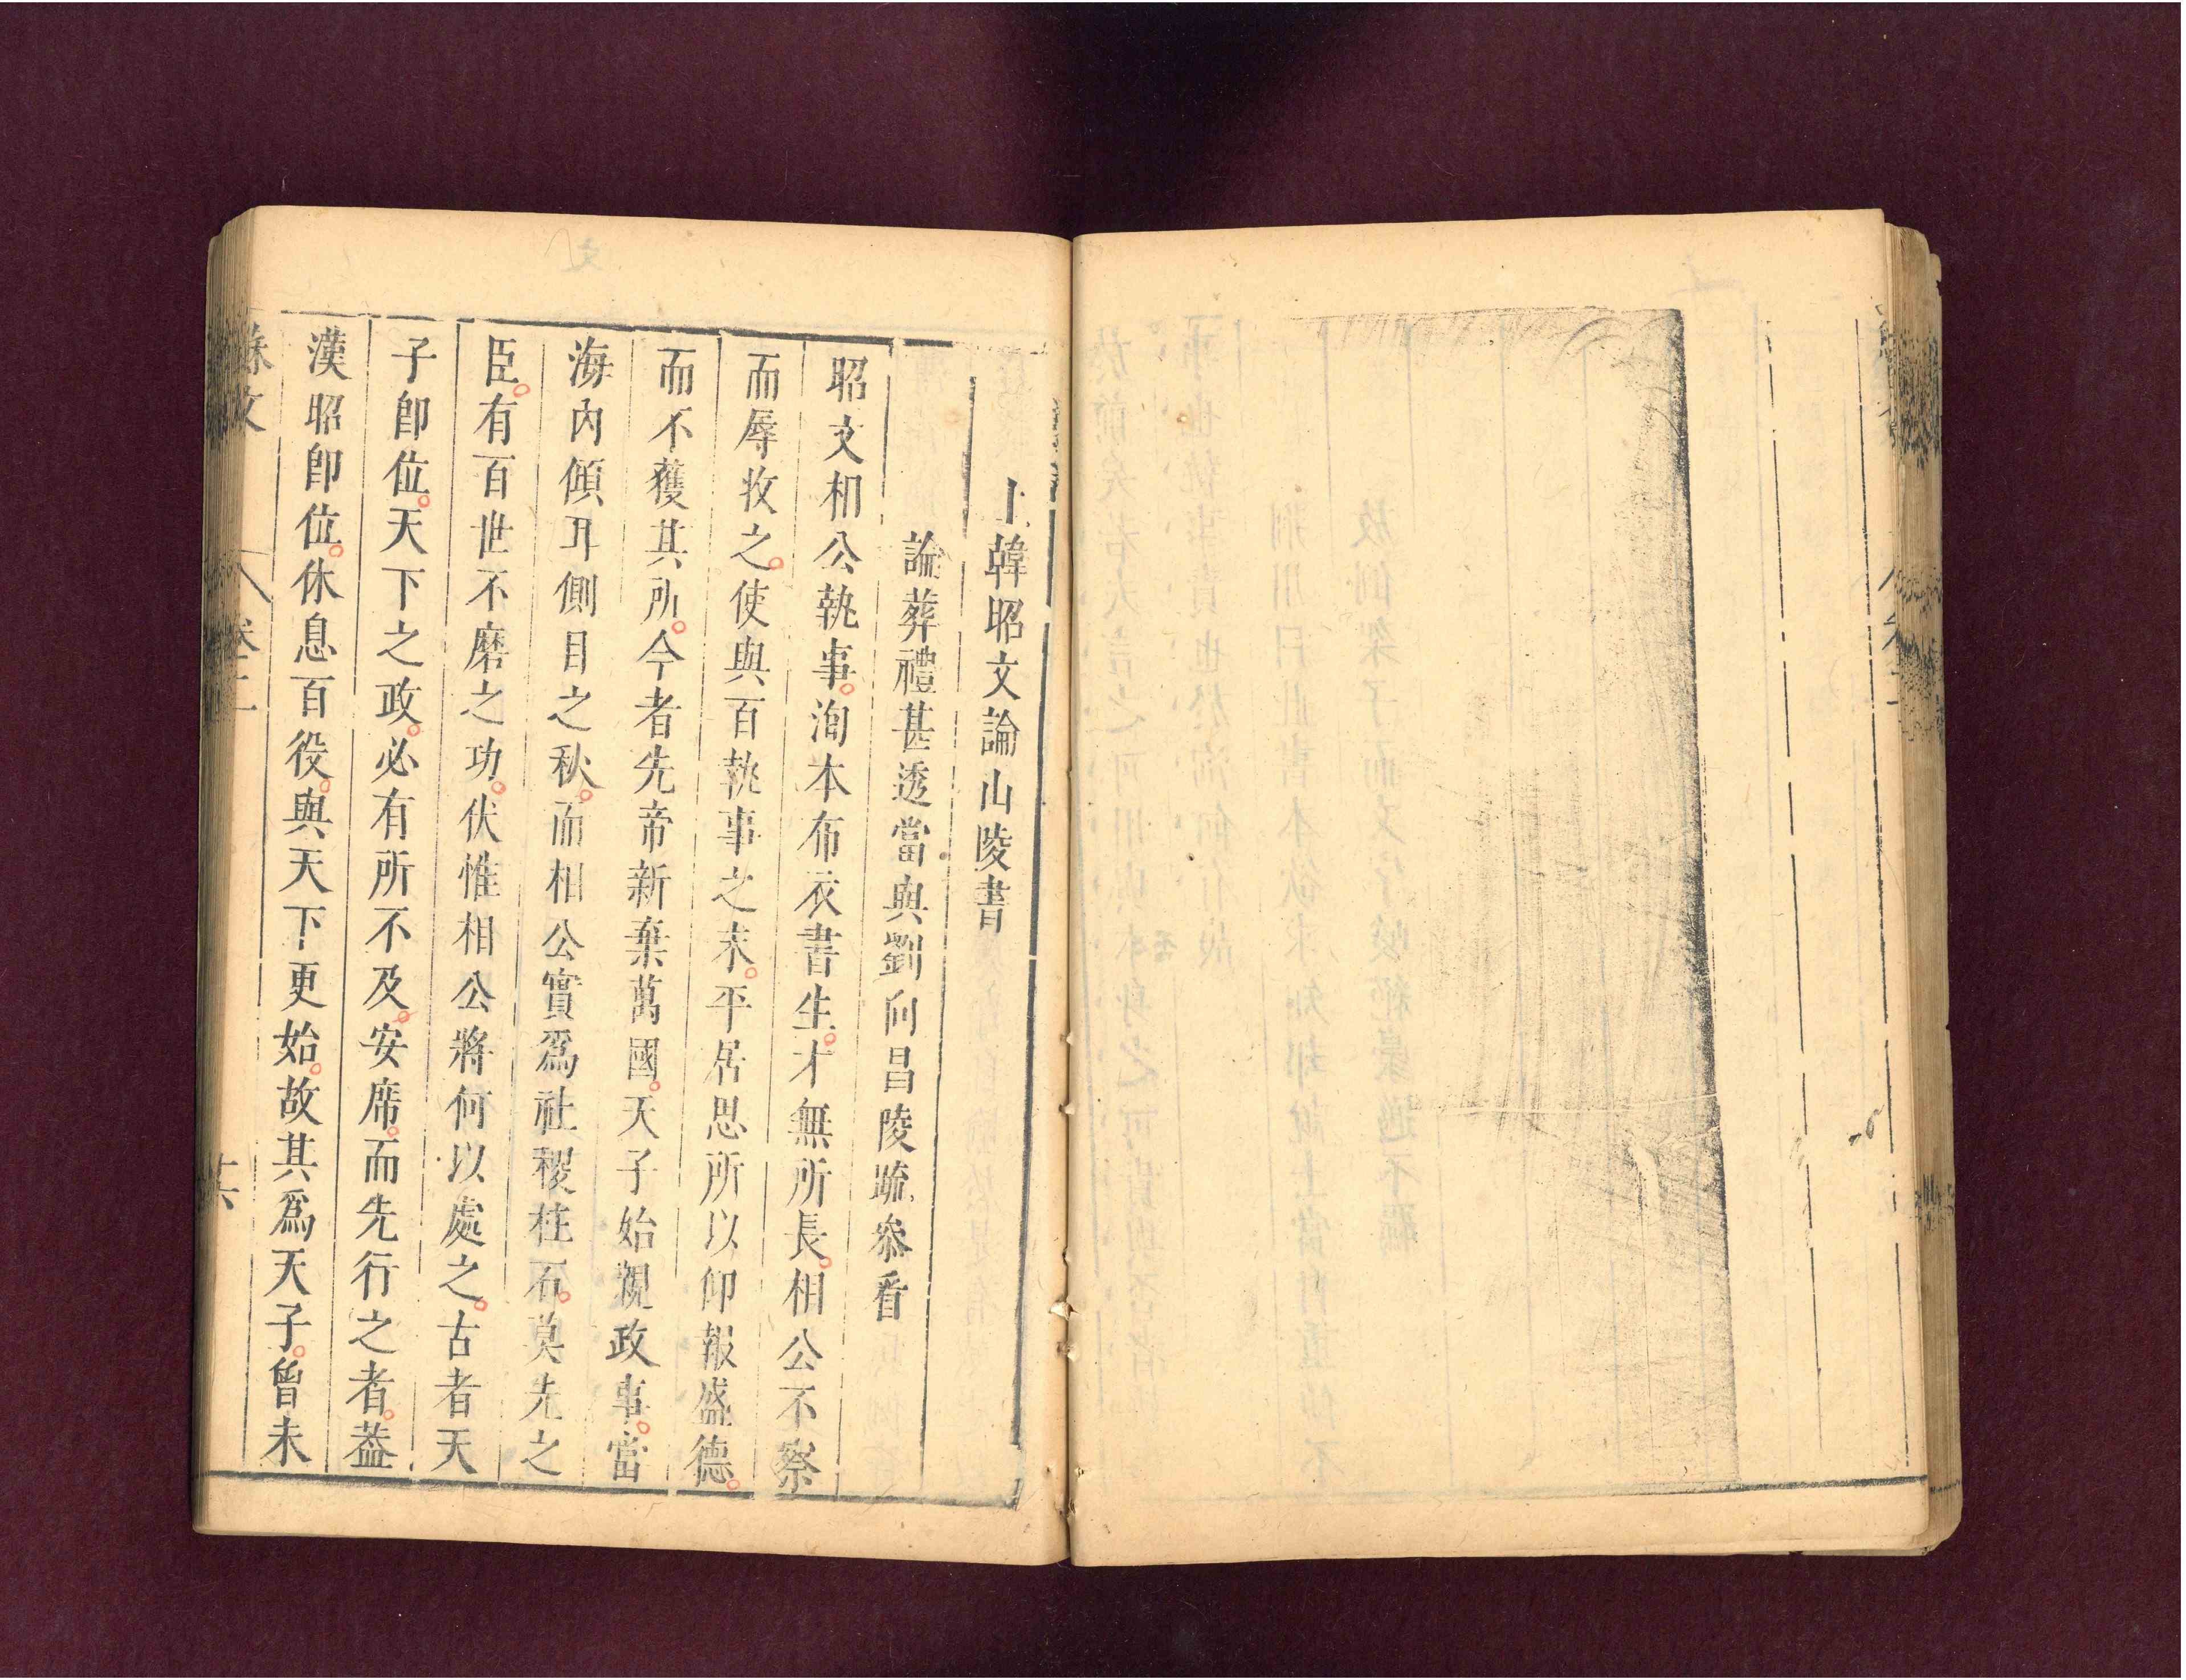 上韓昭文論山陵書
論葬禮甚透當與劉向昌陵䟽叅看
昭文相公執事洵本布衣書生才無所長相公不察
而辱收之使與百執事之末平居思所以仰報盛德
而不獲其所今者先帝新棄萬國天子始親政事當
海內傾耳側目之秋而相公實爲社稷柱石莫先之
臣有百世不磨之功伏惟相公將何以處之古者天
子卽位天下之政必有所不及安席而先行之者葢
漢昭卽位休息百役與天下更始故其爲天子曾未
蘇文 卷二 共